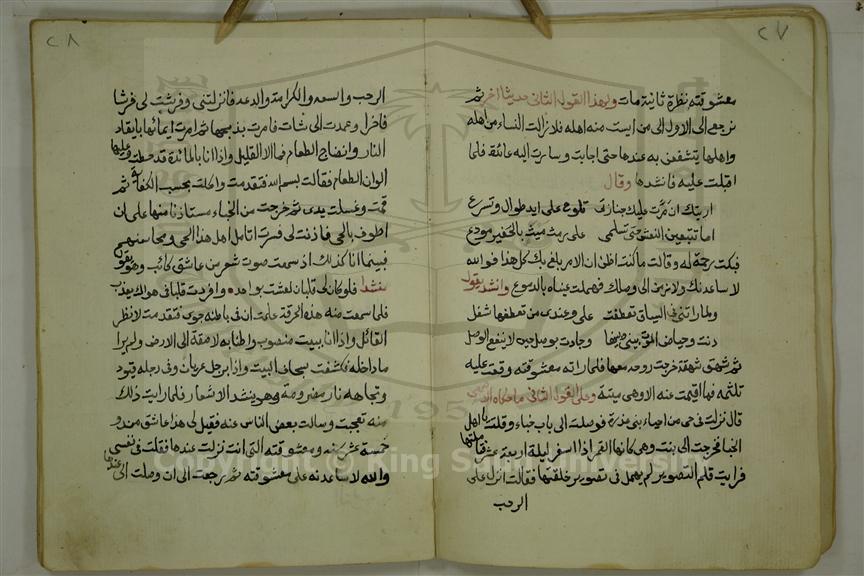 ٢٧
معشوقته نظرة ثانية مات ولهذا القول الثاني حديثا اخر ثم
نرجع الى الاول الى من ايست منه اهله فلا زالت النساء من اهله
واهلها يتشفعن به عندها حتى اجابت وسارت اليه عائدة فلما
اقبلت عليه فانشدها وقال
اريتك ان مرت عليك جنازتي تلوح على ايد طوال وتسرع
اما تتبعين النعش حتى تسلمي على رمث ميت بالحفير مودع
فبكت رحمة له وقالت ما كنت اظن ان الامر بلغ بك كل هذا فوالله
لا ساعدنك ولا نرمن الى وصلك فهملت عيناه بالدموع وانشد يقول
ولما راتني في السياق تعطفت علي وعندي من تعطفها شغل
دنت وحياض الموت بيني وبينها وجادت بوصل حيث لا ينفع الوصل
ثم شهق شهقة فخرجت روحه معها فلما راته معشوقته وقعت عليه
تلثمه فما القيت عنه الا وهي ميتة وعلى القول الثاني ما حكاه
قال نزلت في حي من احياء بني عذرة فوصلت الى باب خباء وقلت يا اهل
الخبا فخرجت الى بنت وهي كانها القمر اذا اسفر ليلة اربعة عشر
فرايت قلم التصوير لم يهمل في تصوير خلقتها فقالت انزل على
الرحب
٢٨
الرحب والسعه والكرامة والدعه فانزلتني وفرشت لي فرشا
فاخرا وعمدت الى شات فامرت بذبحها ثم امرت امائها بايقاد
النار وانضاج الطعام فما الا القليل واذا انا بالمائدة قد حطت وعليها
الوان الطعام فقالت بسم الله فتقدمت واكلت بحسب الكفاية ثم
قمت وغسلت يدي ثم خرجت من الخباء مستاذنا منها على ان
اطوف بالحي فاذنت لي فسرت اتامل اهل هذا الحي ومحاسنهم
فبينما انا كذلك اذ سمعت صوت شعر من عاشق كائب وهو يقول
منشدا فلو كان لي قلبان لعشت بواحد وافردت قلبا في هواك يعذب
فلما سمعت منه هذه الحرقة علمت ان في باطنه جوى فتقدمت لانظر
القائل واذا انا ببيت منصوب واطنابه لاصقة الى الارض ولم ارا
ما داخله فكشفت سجاف البيت واذا برجل عريان وفي رجله قيود
وتجاهه نار مضرومة وهو ينشد الاشعار فلما رايت ذلك
منه تعجبت وسالت بعض الناس عنه فقيل لي هذا عاشق من مدة
خمسة عشر سنه ومعشوقته التي انت نزلت عندها فقلت في نفسي
والله لا ساعدنه على معشوقته ثم رجعت الى ان وصلت الى عندها
Copyright © King Saud University
1957